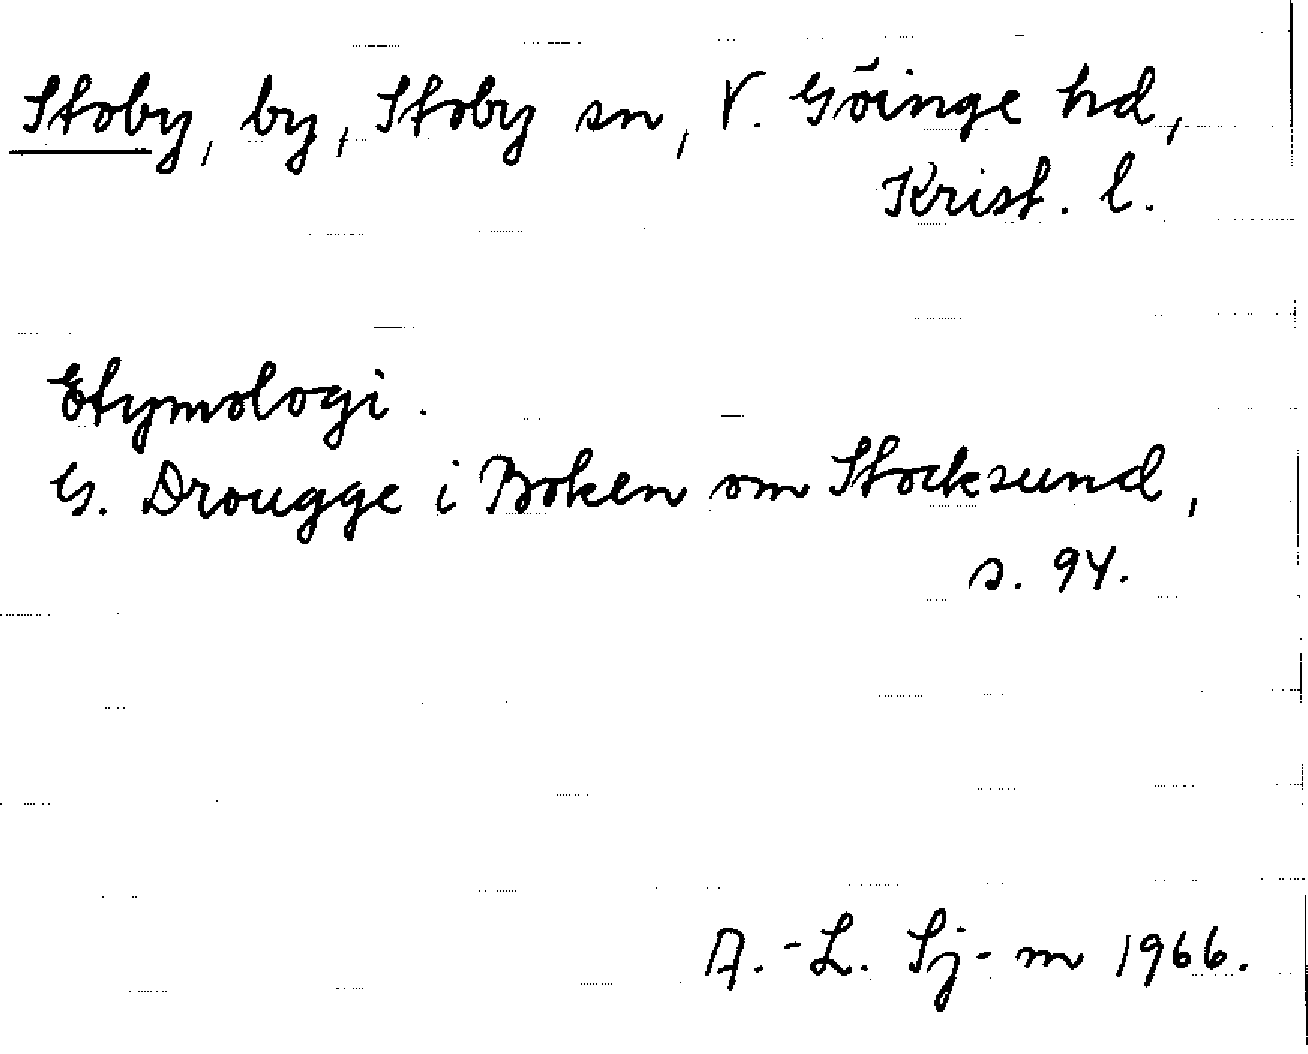 Stoby, by, Stoby sn, V. Göinge hd,
Krist. l.
Etymologi.
G. Drougge i Boken om Stocksund,
s. 94.
A.-L. Sj-m 1966.